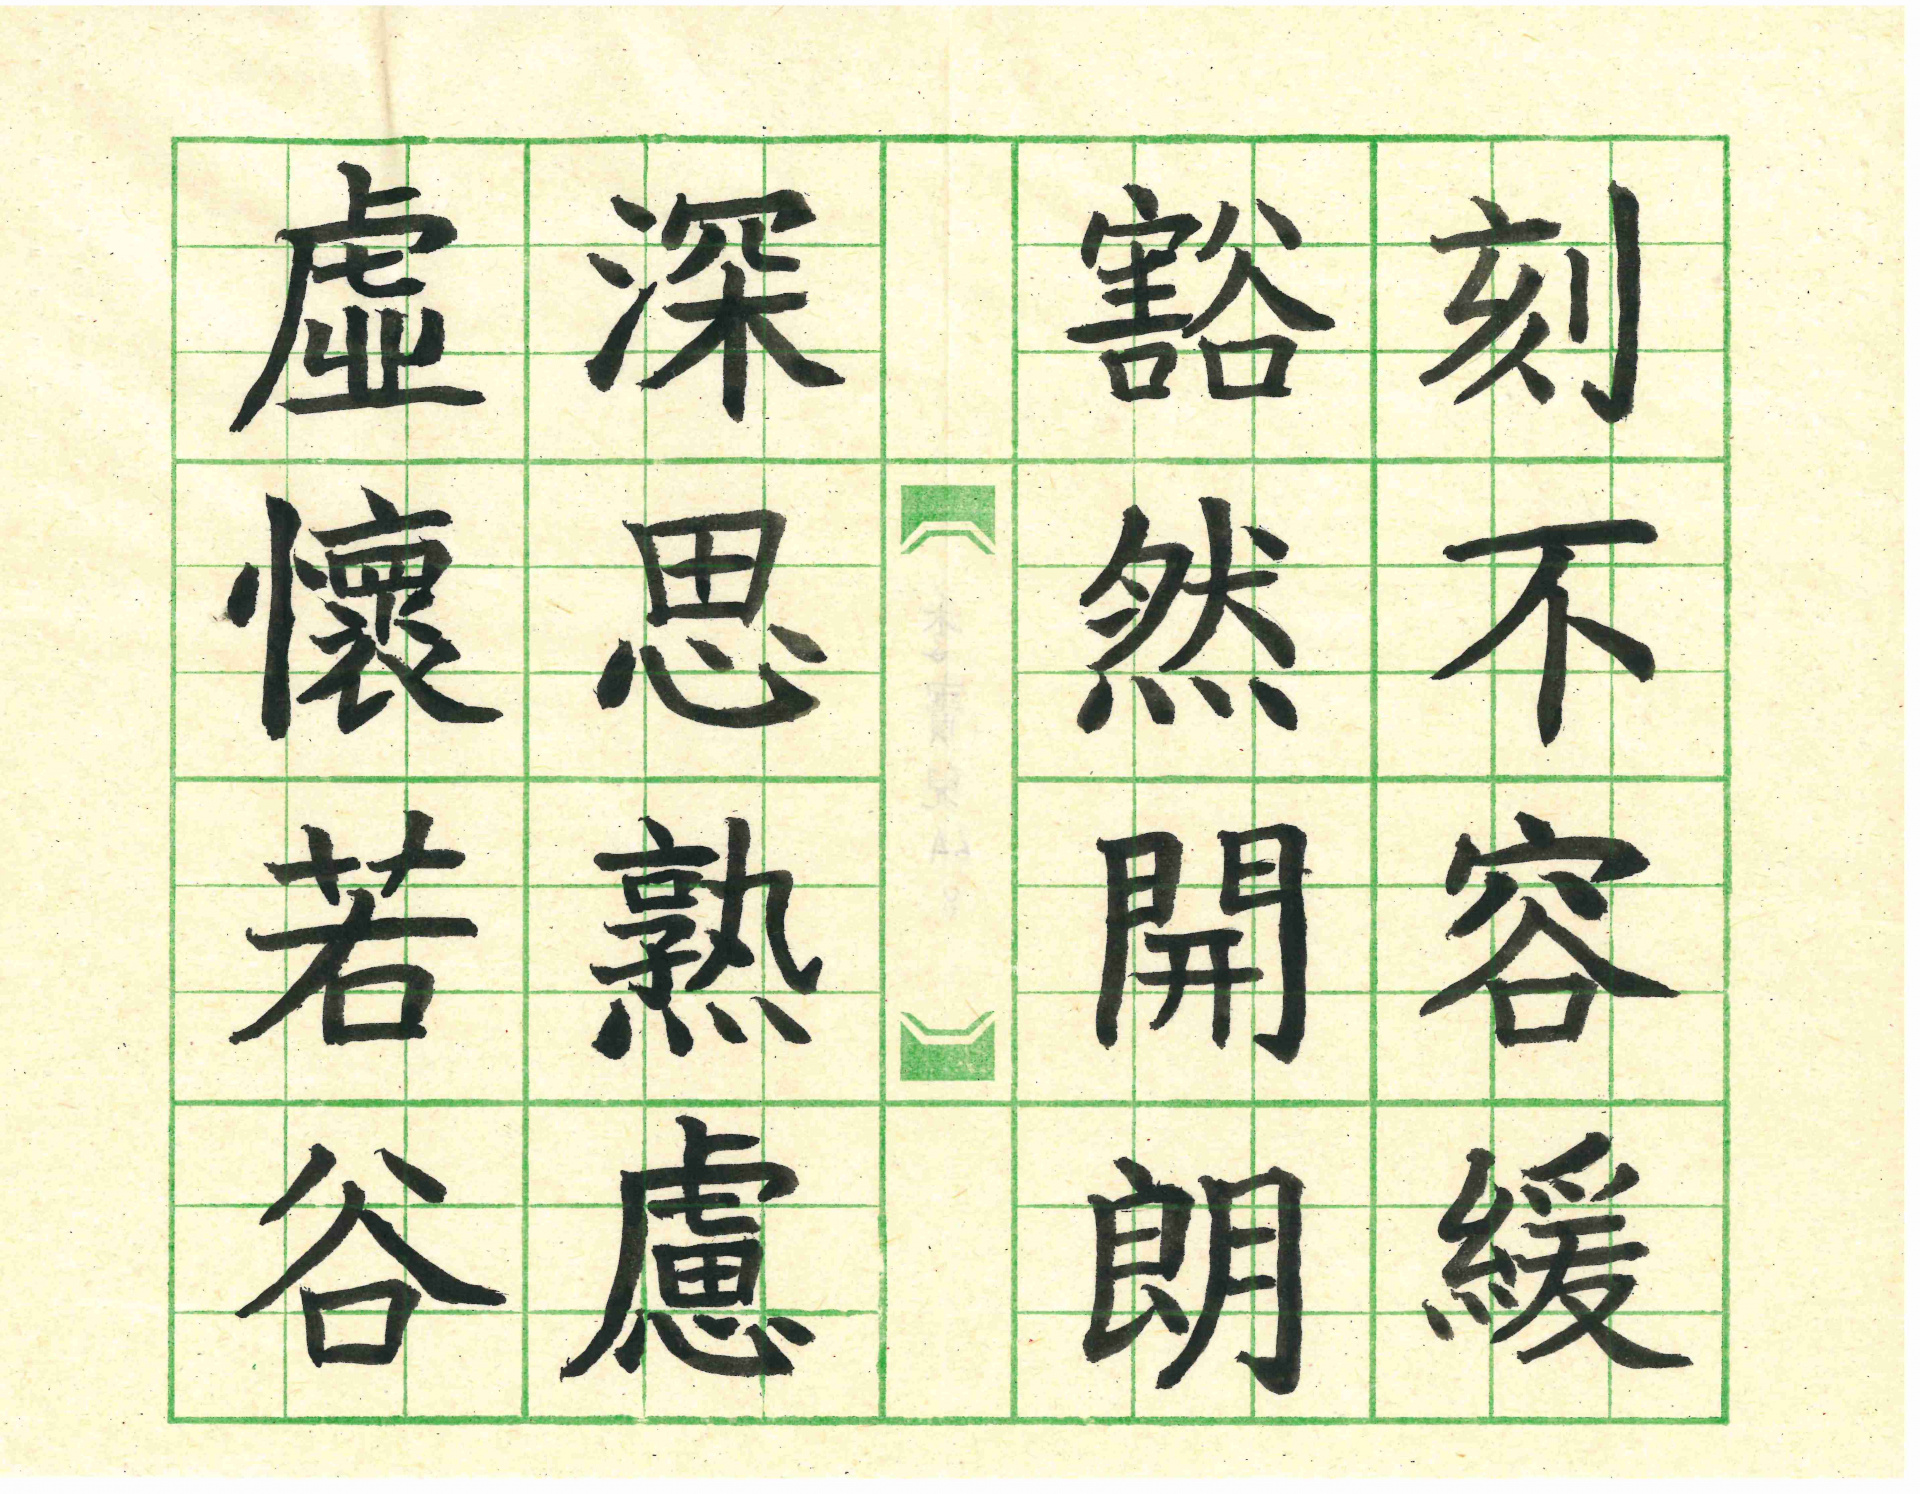 刻不容緩
豁然開朗
深思熟慮
虛懷若谷